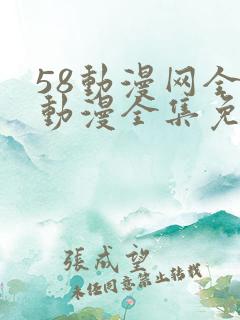 58動漫网全
動漫全集免
張成望
未任同意禁止转载